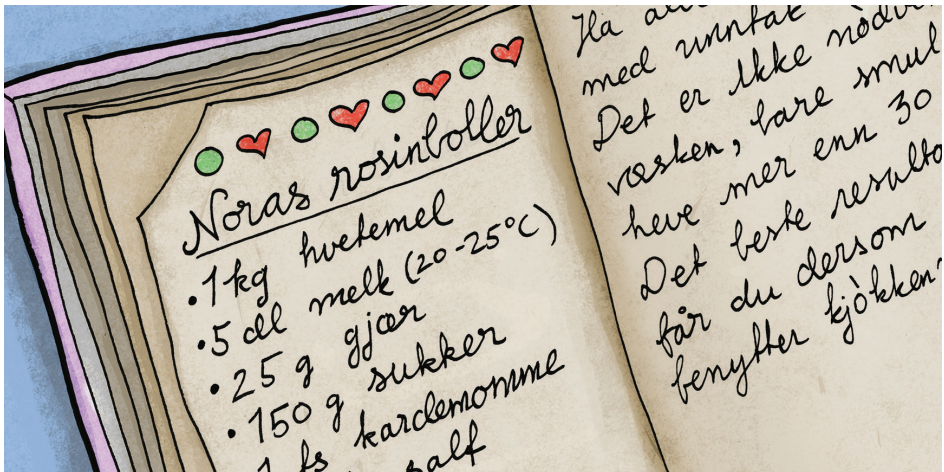 Noras rosinboller
• 1 kg hvetemel
• 5 dl melk (20-25°C)
• 25 g gjær
• 150 g sukker
1 ts kardemomme
salt
Ha
med unntak
Det er ikke
væsken, bare
heve mer enn 30
Det beste
får du dersom
benytter